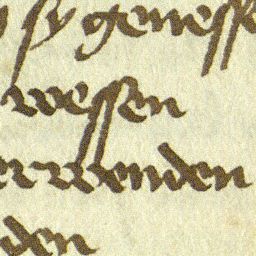 sy genesse
wessen
erwenden
den